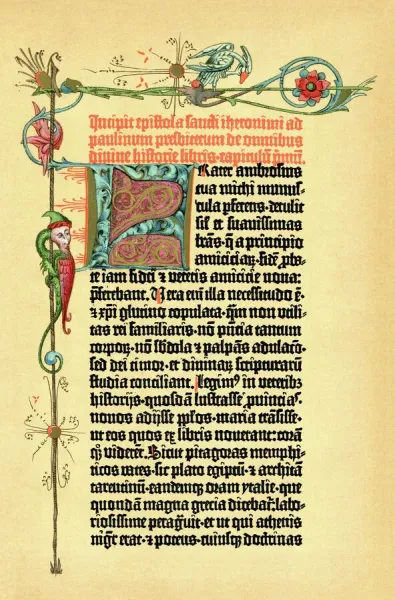 Incipit epistola sancti iheronimi ad
paulinum presbiterum de omnibus
divine historie libris·capitulū p̄mū.
Frater ambrosius
tua michi munus-
cula ꝑferens·detulit
sil' et suavissimas
lr̄as·q̄ a principio
amiciciaꝝ·fidē ꝓba-
te iam fidei ⁊ veteris amicicie nova:
p̄ferebant. Vera em̄ illa necessitudo ē·
⁊ xp̄i glutino copulata·qm̄ non utili-
tas rei familiaris·nō p̄ncia tantum
corpoꝝ·nō sb̄dola ⁊ palpās adulac̄o·
sed dei timor·et divinaꝝ scripturarū
studia conciliant. Legimꝰ in veteribꝫ
historijs·quosdā lustrasse ꝓuīcias·
novos adijsse pp̄los·maria trāsisse·
ut eos quos ex libris noverant: corā
qꝫ viderēt. Sicut pitagoras memphi-
ticos vates·sic plato egiptū·⁊ architā
tarentinū·eandemqꝫ oram ytalie·que
quondā magna grecia dicebat̄:labo-
riosissime peragͥuit·et ut qui athenis
mgr̄ erat·⁊ potens·cuiusqꝫ doctrinas